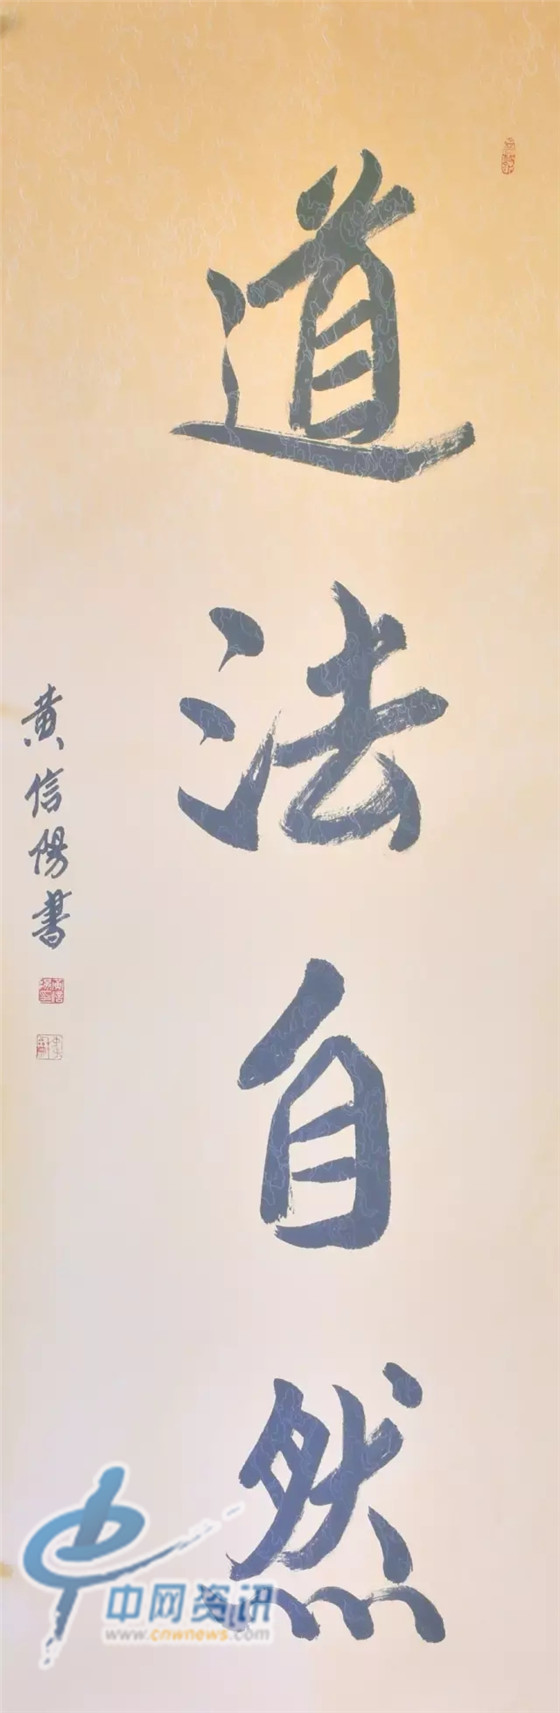 道法自然
黄信陽書
中网资讯
www.cnwnews.com